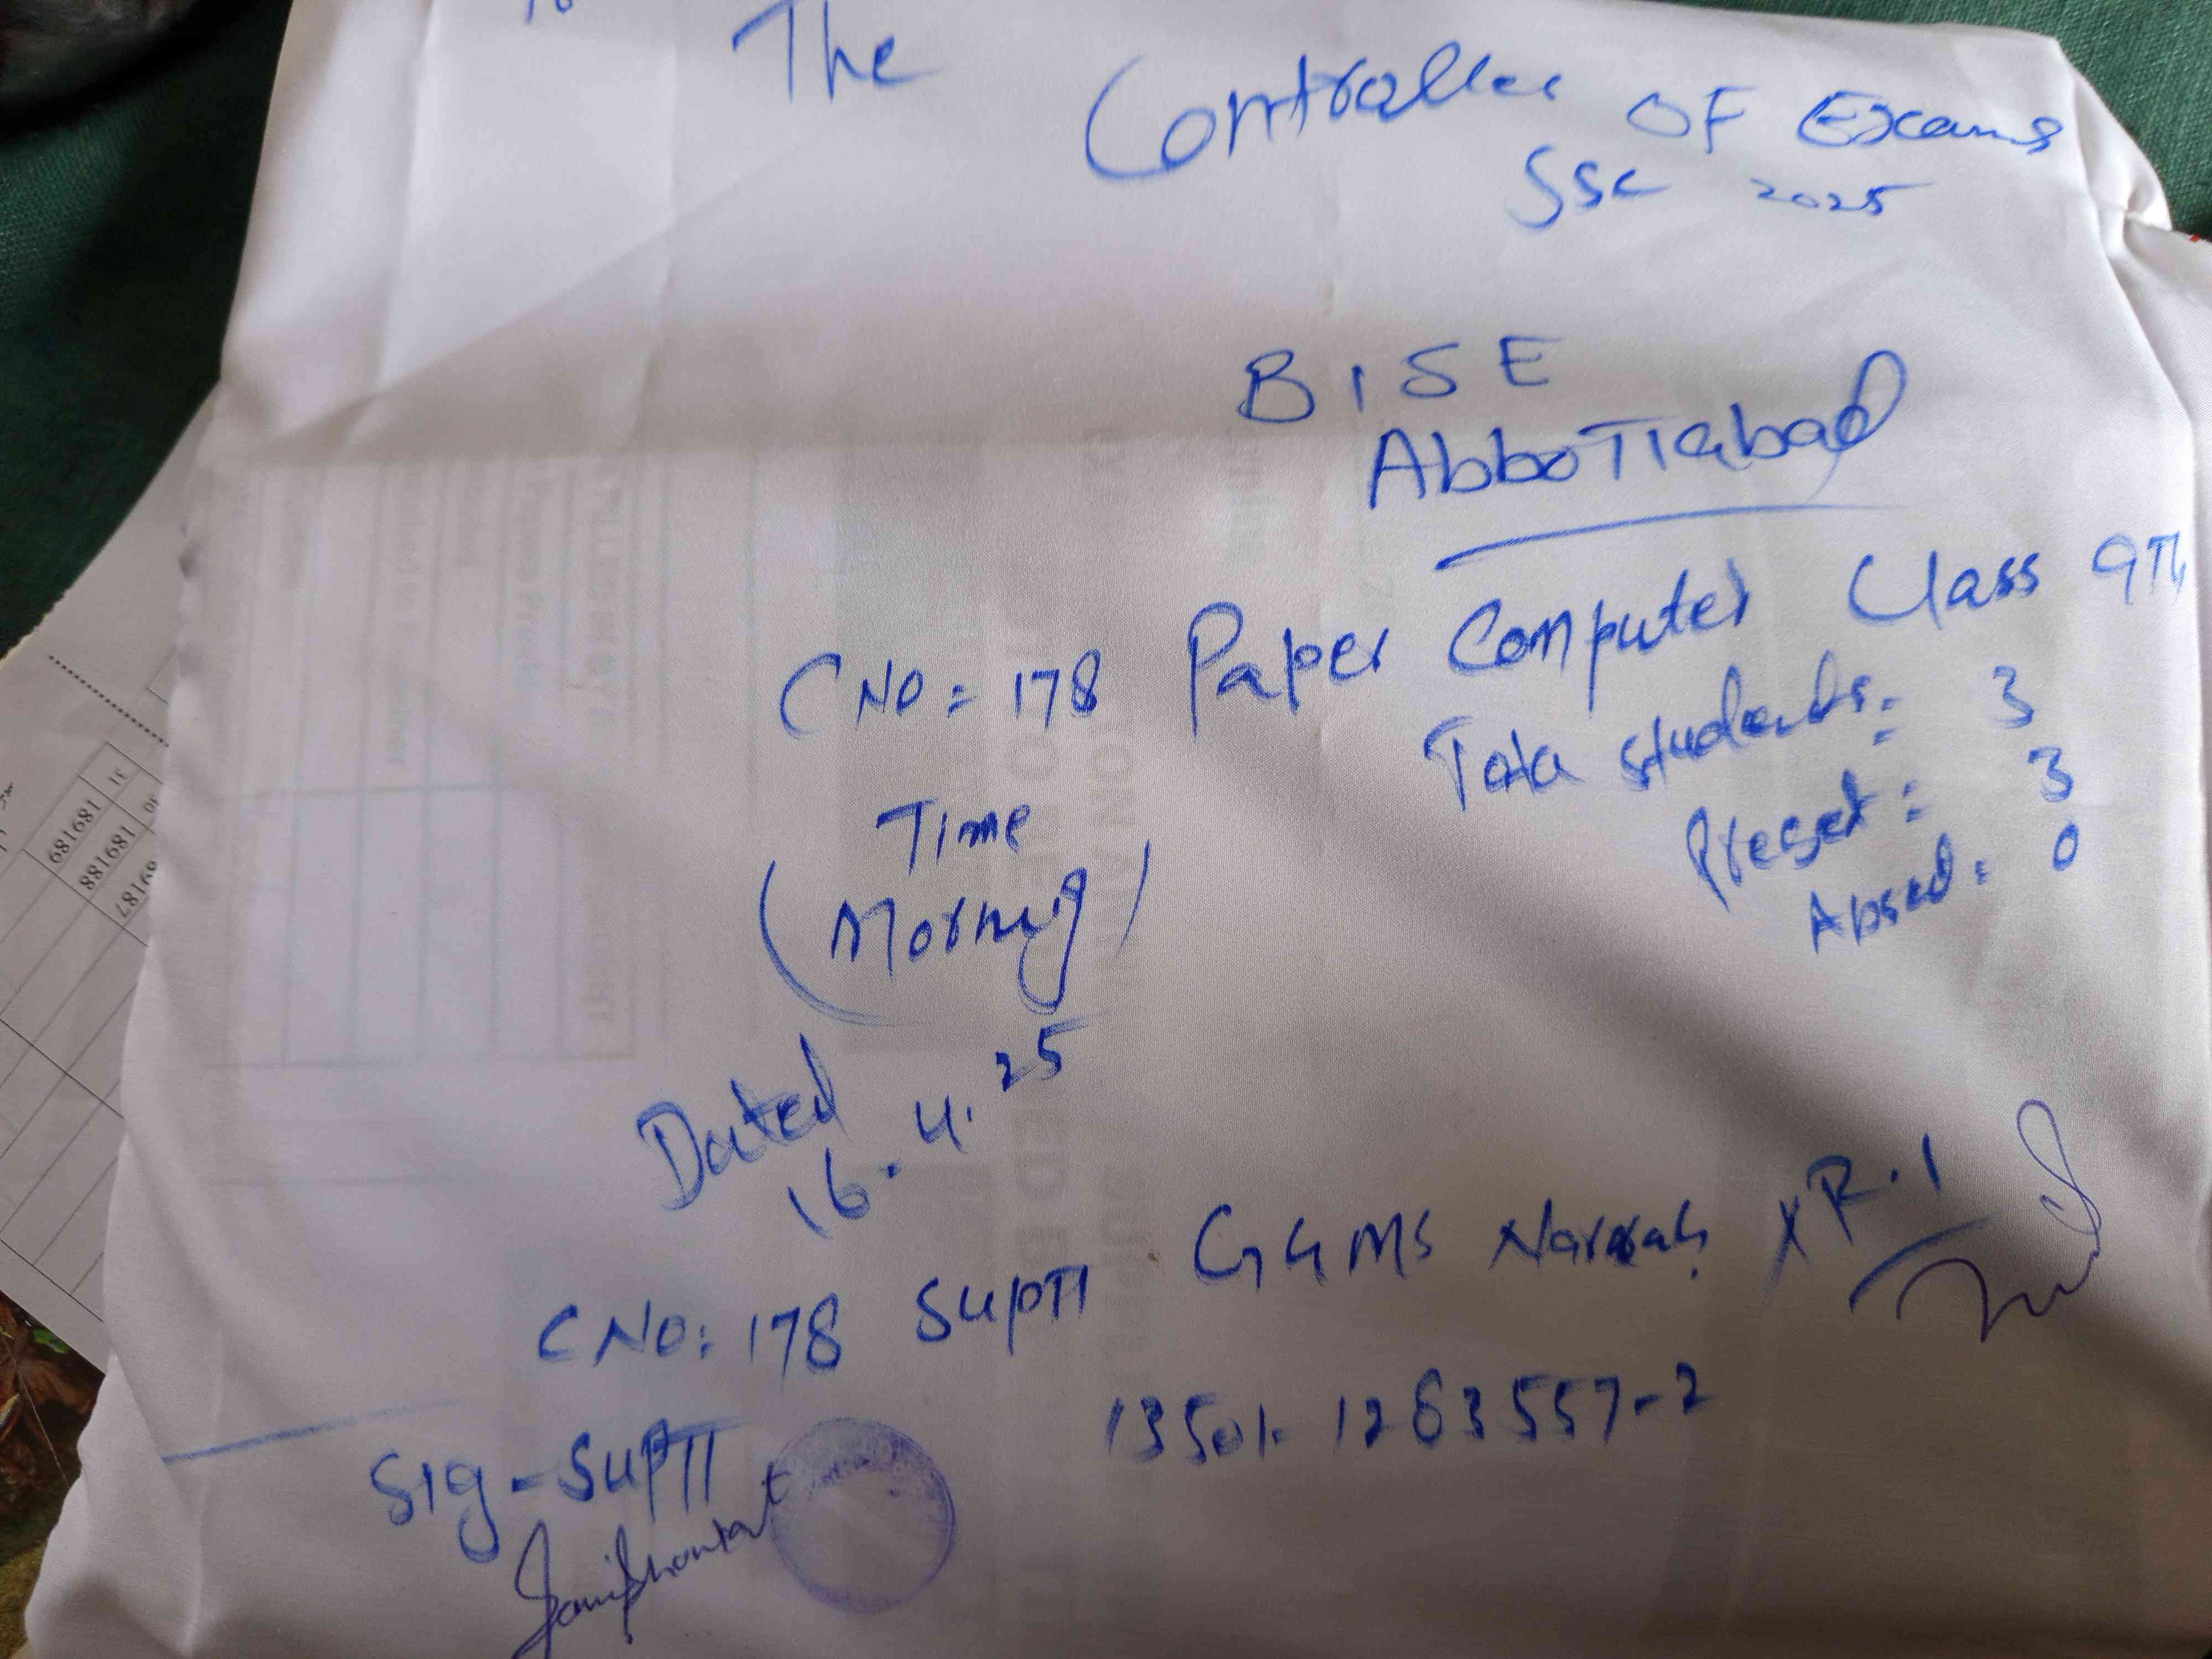 To
The Controller OF Exams
SSC 2025
BISE
AbboTTabad
C NO = 178 Paper Computer Class 9Th
Total students: 3
Preset: 3
Absed: 0
Time
(Morning)
Dated
16.4.25
C NO: 178 SupTT GGMS Narrah
Sig - SupTT
13501-1263557-2
181689
31
181688